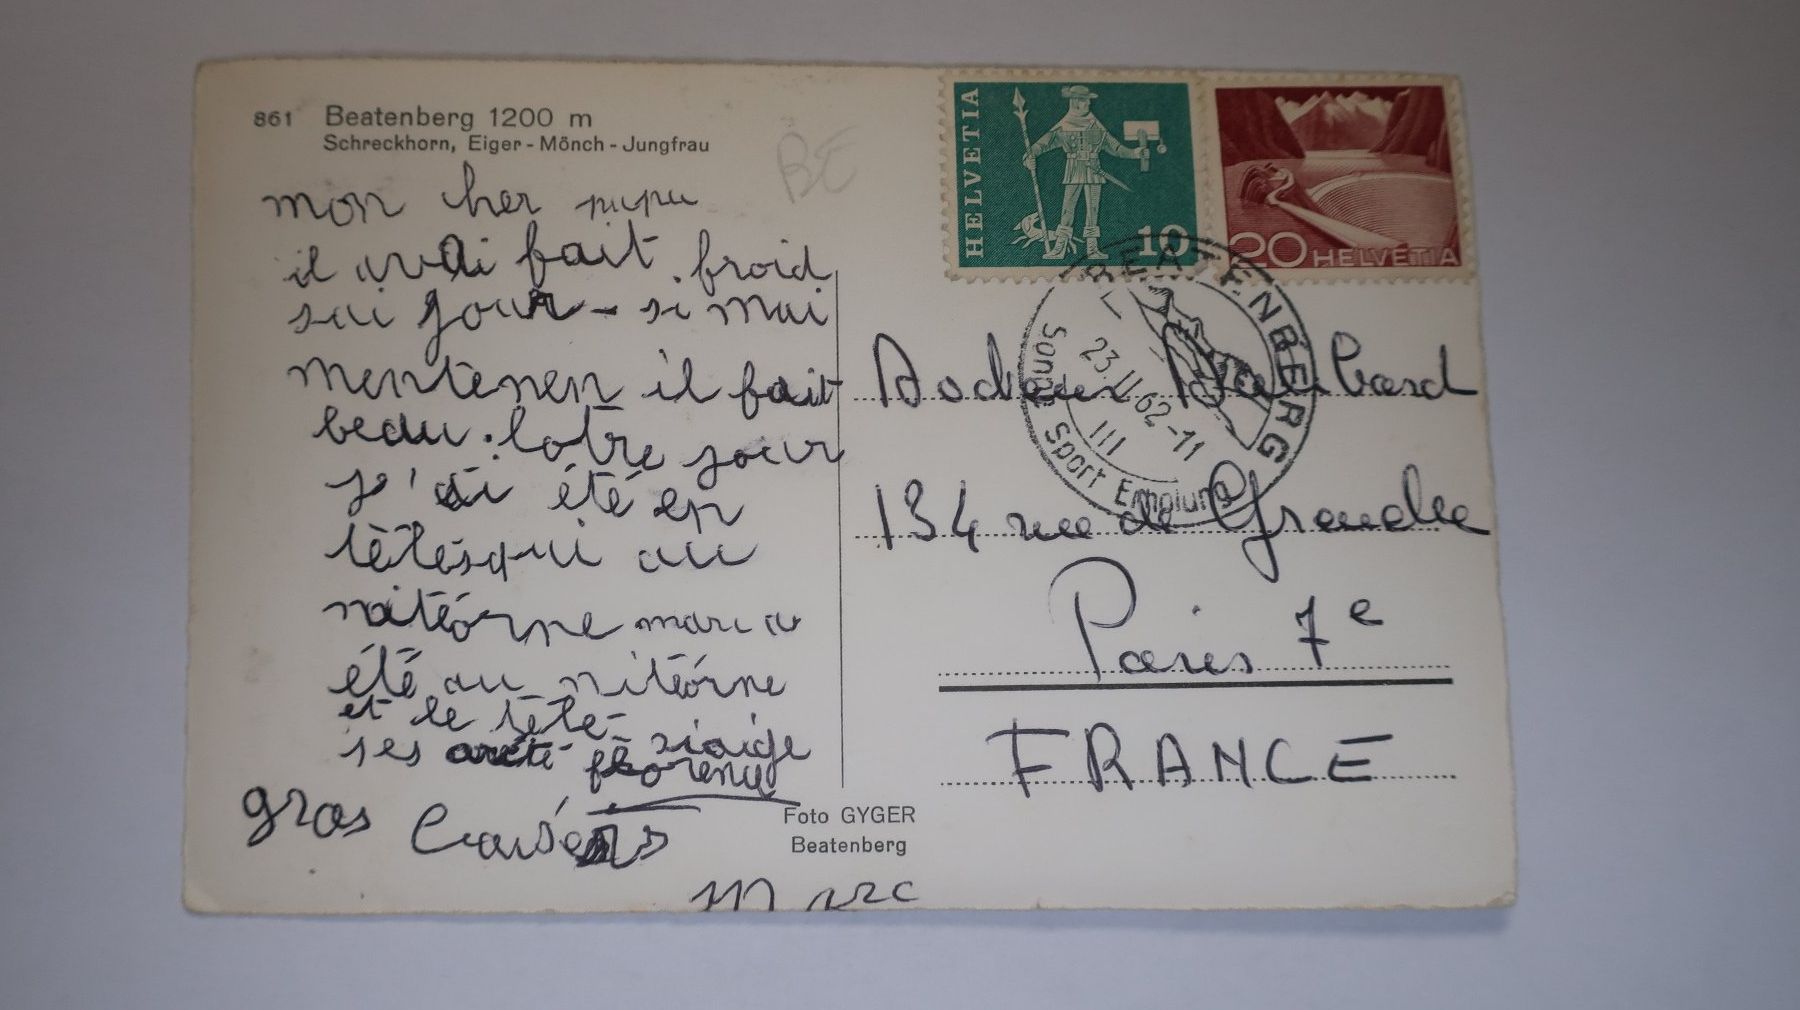 861 Beatenberg 1200 m
Schreckhorn, Eiger - Mönch - Jungfrau
BE
HELVETIA
10
20 HELVETIA
BEATENBERG
23.II.62-11
III
Sonne Sport Erholung
mon cher papa
il avai fait froid
sai jour - si mai
mentenen il fait
beau. lotre jour
j'ai été en
télésqui au
nitéorne marc a
été au nitéorne
et le télé-
ses siaige
florence
gros
Marc
Docteur
134 rue de Grenelle
Paris 7e
FRANCE
Foto GYGER
Beatenberg